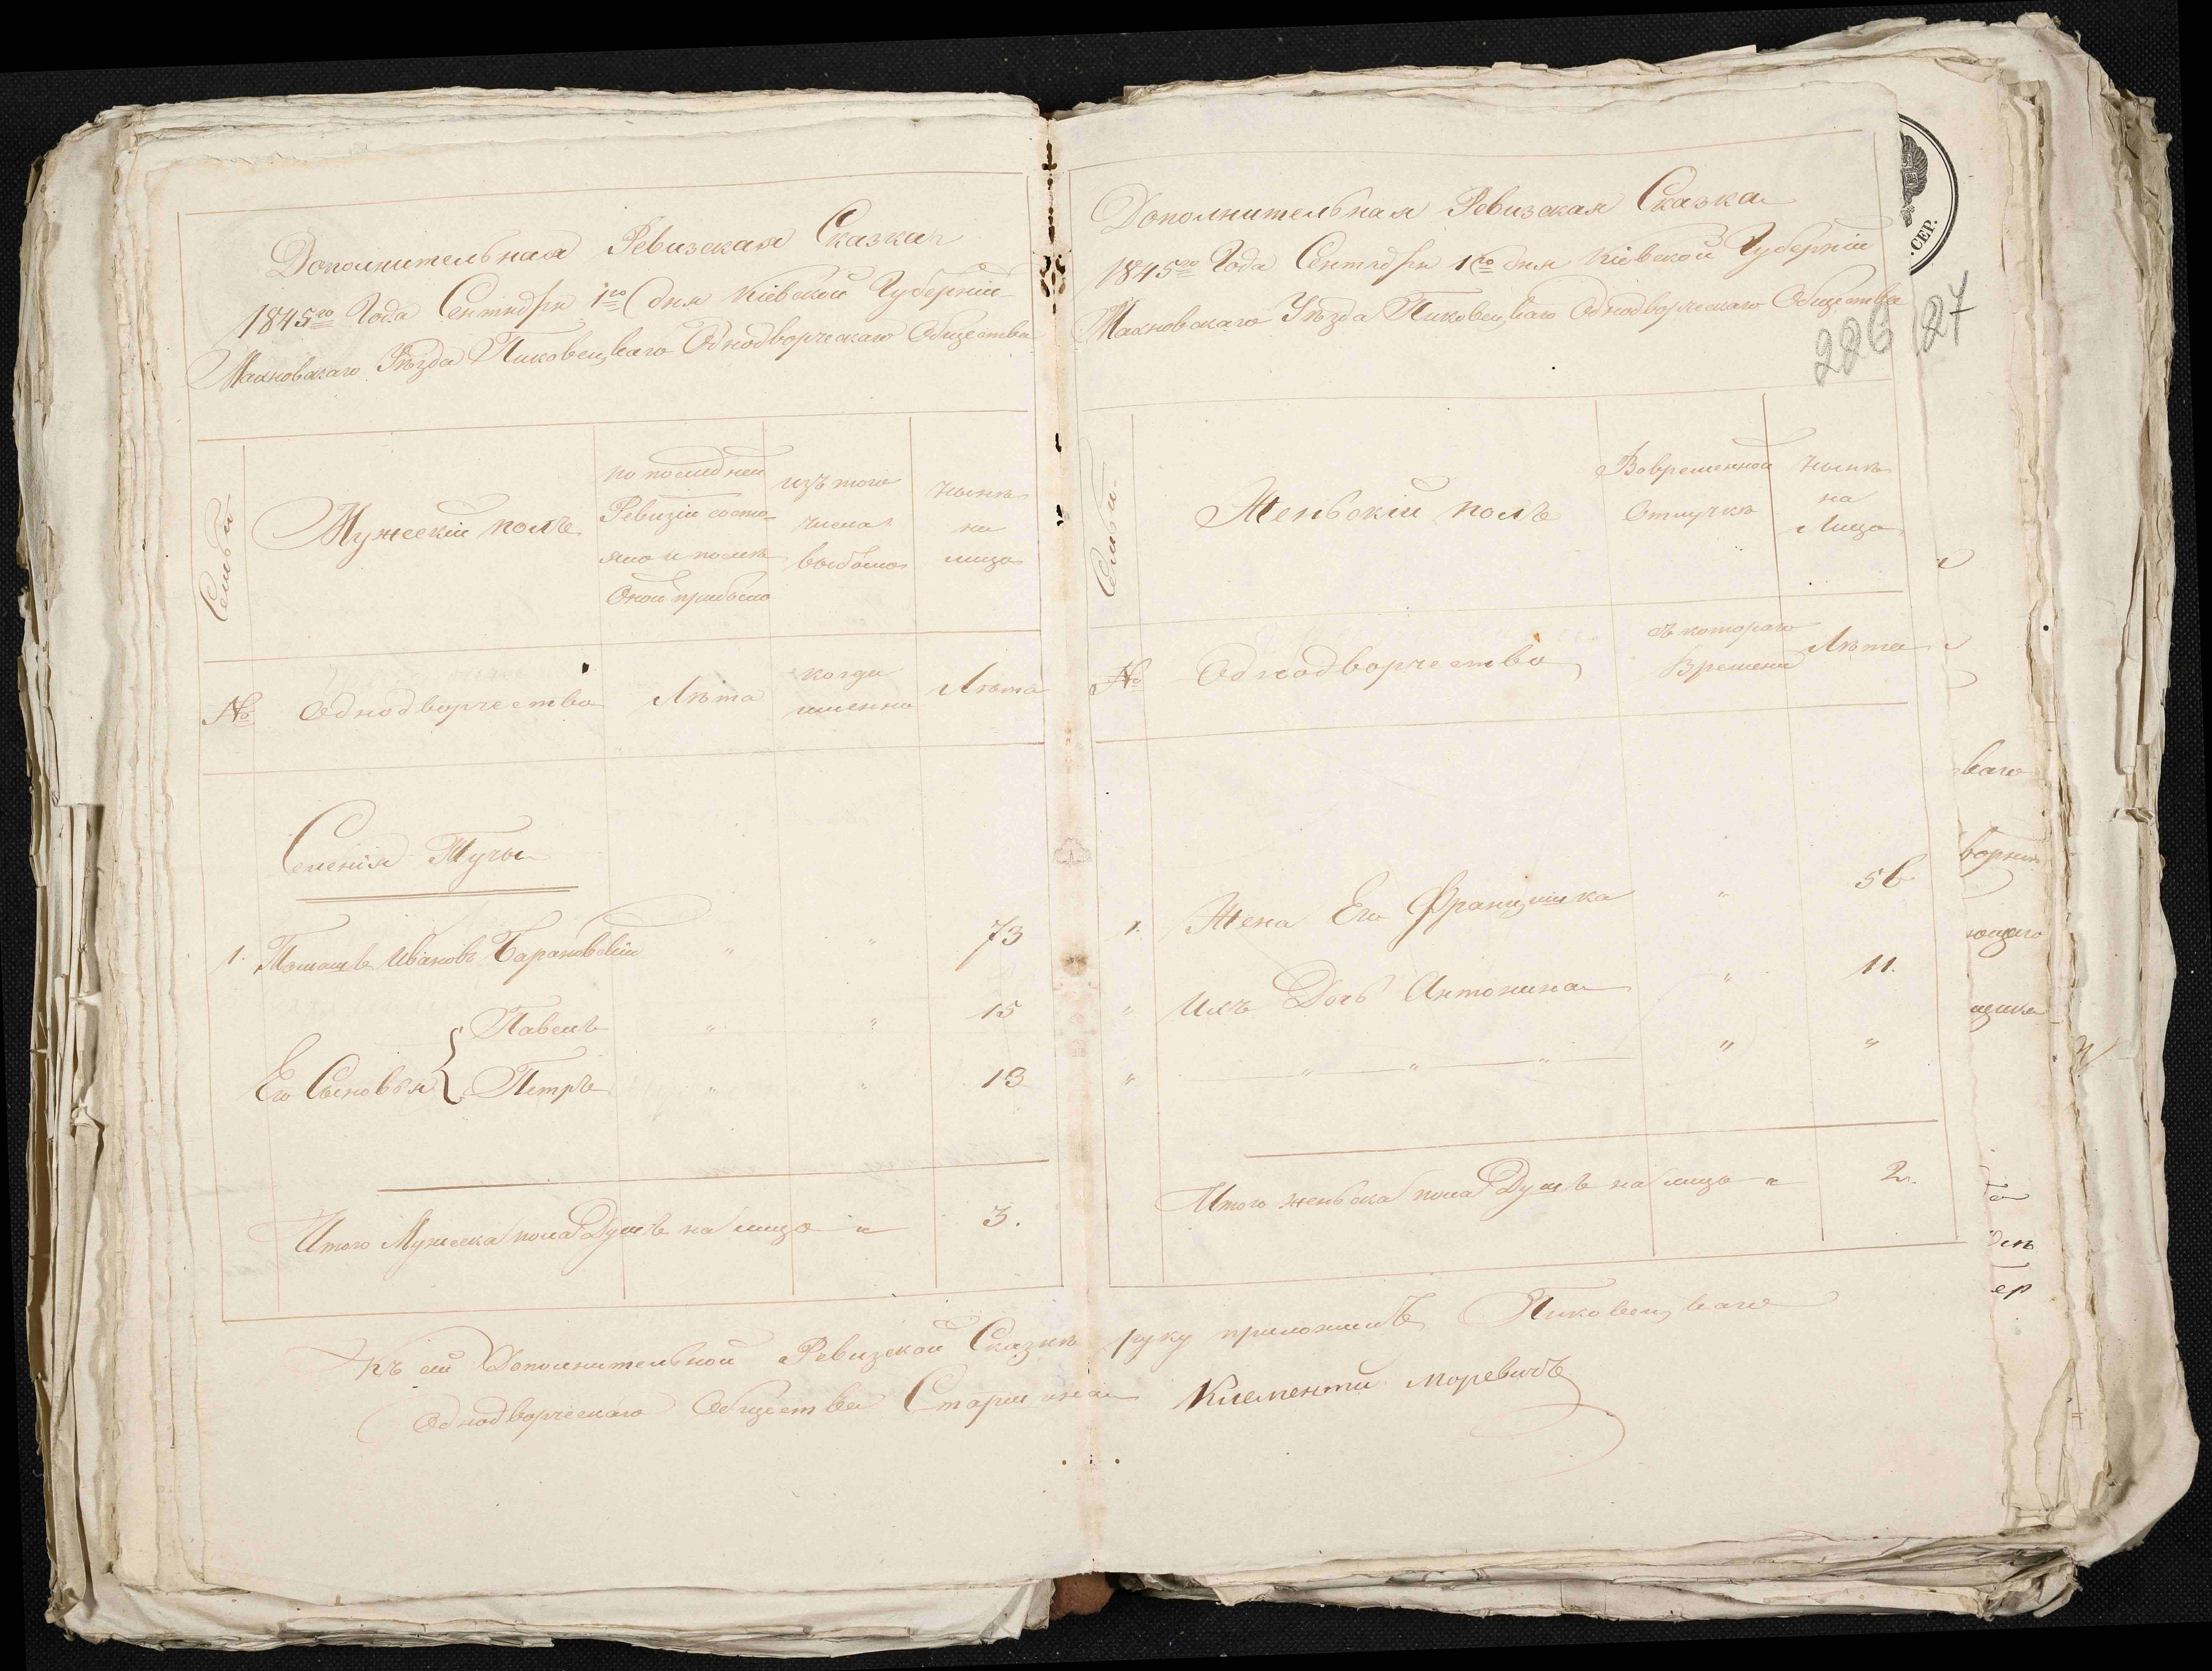 Дополнительная Ревизская Сказка
1845го Года Сентября 1го дня Кіевской Губерніи
Махновскаго Уѣзда Пиковецкаго Однодворческаго Общества
Семьи
Мужескій полъ
по последней
Ревизіи состо-
яло и послѣ
Оной прибыло
изъ того
числа
выбыло
нынѣ
на
лицо
№
Однодворчества
Лѣта
когда
именно
Лѣта
Селенія Тучы
1. Томашъ Ивановъ Барановскій " " 73
Павелъ " " 15
Его Сыновья
Петръ " " 13
Итого Мужеска пола Душъ на лицо " 3.
Дополнительная Ревизская Сказка
1845го Года Сентября 1го дня Кіевской Губерніи
Махновскаго Уѣзда Пиковецкаго Однодворческаго Общества
226
27
.СЕР.
Семьи
Женьскій полъ
Вовременной
Отлучкѣ
нынѣ
на
Лицо
№
Однодворчество
съ котораго
Времени
Лѣта
1. Жена Его Францишка " 56
" Ихъ Дочь Антонина " 11.
" " " " " "
Итого женьска пола Душъ на лицо " 2.
Къ сей Дополнительной Ревизской Сказкѣ руку приложилъ Пиковецкаго
Однодворческаго Общества Старшина Клементи Моревичъ